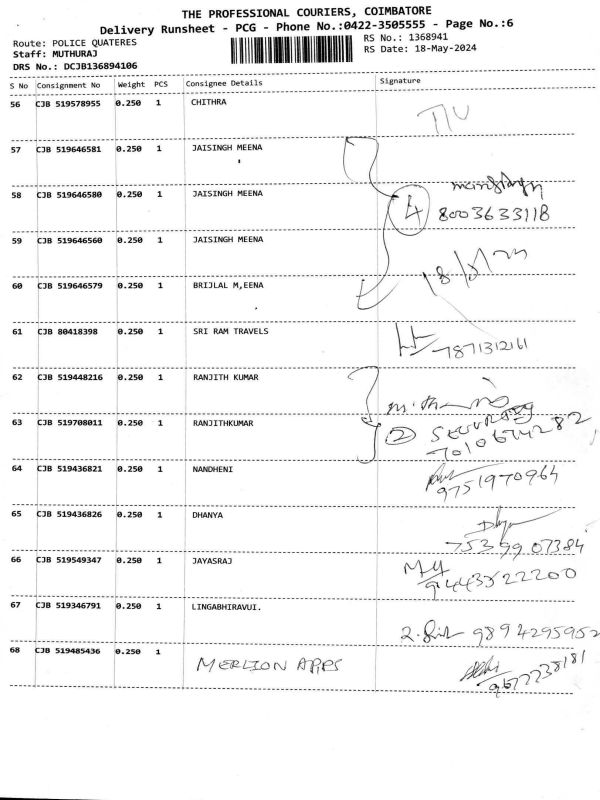 THE PROFESSIONAL COURIERS, COIMBATORE
Delivery Runsheet - PCG - Phone No.:0422-3505555 - Page No.:6
Route: POLICE QUATERES
RS No.: 1368941
Staff: MUTHURAJ
RS Date: 18-May-2024
DRS No.: DCJB136894106
S No Consignment No Weight PCS Consignee Details Signature
56 CJB 519578955 0.250 1 CHITHRA
57 CJB 519646581 0.250 1 JAISINGH MEENA
58 CJB 519646580 0.250 1 JAISINGH MEENA 4 8003633118
59 CJB 519646560 0.250 1 JAISINGH MEENA
60 CJB 519646579 0.250 1 BRIJLAL M,EENA
61 CJB 80418398 0.250 1 SRI RAM TRAVELS 7871312161
62 CJB 519448216 0.250 1 RANJITH KUMAR
63 CJB 519708011 0.250 1 RANJITHKUMAR 2 SECURITY
64 CJB 519436821 0.250 1 NANDHENI 9751970964
65 CJB 519436826 0.250 1 DHANYA 7539907384
66 CJB 519549347 0.250 1 JAYASRAJ 9443522200
67 CJB 519346791 0.250 1 LINGABHIRAVUI. 9894295952
68 CJB 519485436 0.250 1 MERLION APPS